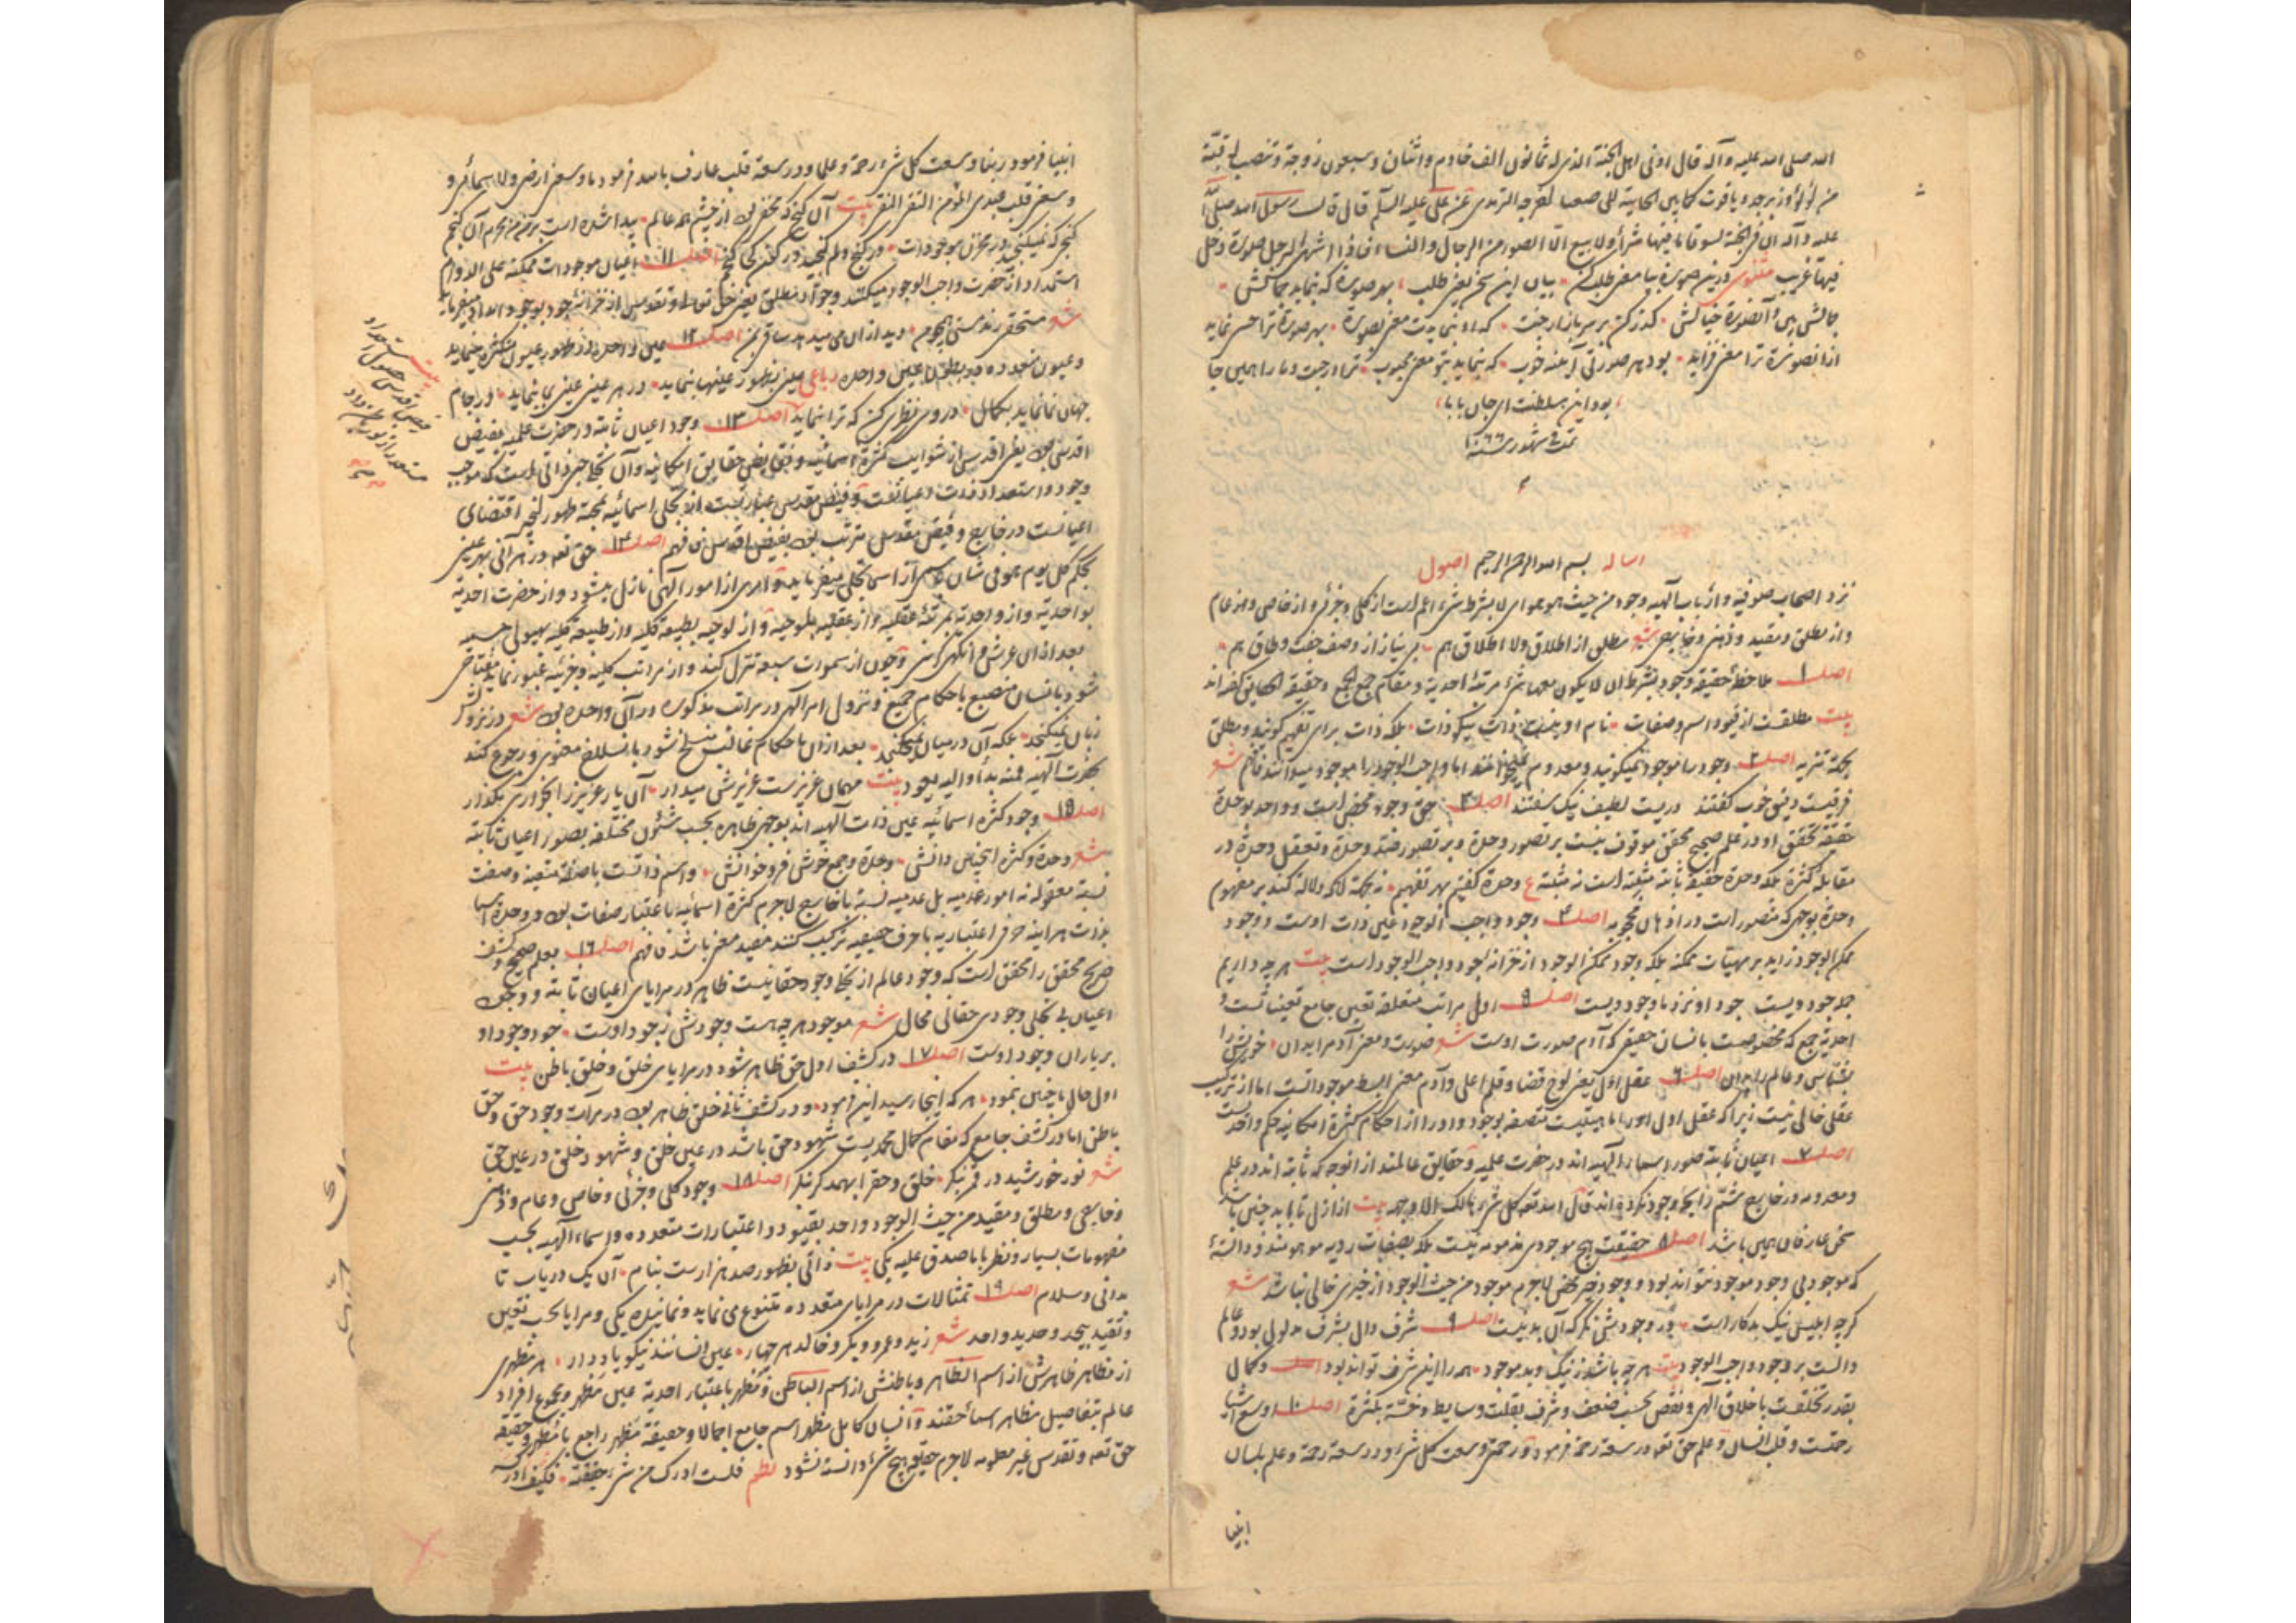 الله صلی الله علیه وآله قال ادنی اهل الجنة الذی له ثمانون الف خادم واثنان وسبعون زوجة وتنصب له قبة
من لؤلؤ وزبرجد ویاقوت کما بین الجابیة الی صنعا اخرجه الترمذی عن علی علیه السلم قال قال رسول الله صلی الله
علیه وآله ان فی الجنة لسوقا ما فیها شراء ولا بیع الا الصور من الرجال والنساء فاذا اشتهی الرجل صورة دخل
فیها غریب مثنوی درین صورت بیا معنی طلب کن بیان این سخن یعنی طلب بهر صورت که بنماید جمالش
جمالش بین وآنصورت خیالش گذر کن بر سر بازار جنت که او بنمایدت معنی بصورت بهر صورت ترا حسن نماید
ازانصورت ترا معنی فزاید بود هر صورتی آینه خوب که بنماید بتو معنی محبوب ترا در جنت وما را همین جا
بود این سلطنت ای جان بابا
تمت فی شهور سنه ۱۰۶۶
رساله بسم الله الرحمن الرحیم اصول
نزد اصحاب صوفیه وارباب آلهیه وجود من حیث هو هو ای لا بشرط شیء اعم است از کلی وجزئی واز خاص و عام
واز مطلق ومقید وذهنی وخارجی شعر مطلق از اطلاق ولا اطلاق هم بی نیاز از وصف جفت وطاق هم
اصل ۱ ملاحظه حقیقة وجود بشرط ان لا یکون معها شیء مرتبه احدیة ومقام جمع الجمع وحقیقة الحقایق گفته اند
بیت مطلقست از قیود اسم وصفات نام او نیست ذات بلکه ذات برای تفهیم گویند ومطلق
بجهة تنزیه اصل ۲ وجود را موجود نمیگویند ومعدوم اما واجب الوجود را موجود میدانند فافهم شعر
فرقیست دقیق خوب گفتند دریست لطیف نیک سفتند اصل ۳ حق وجود محض است وواحد بوحدة
حقیقة تحقق او در علم صحیح محقق موقوف نیست بر تصور وحدة وبر تصور ضد وحدة وتعقل وحدة در
مقابله کثرة بلکه وحدة حقیقة ثابته مثبته است نه مثبته ع وحدة گفتیم بهر تفهیم نه بجهة آنکه دلالة کند بر مفهوم
وحدة بوجهی که متصور است در اذهان محجوبه اصل ۴ وجود واجب الوجود عین ذات اوست ووجود
ممکن الوجود زاید بر مهیات ممکنه بلکه وجود ممکن الوجود از خزانه جود واجب الوجود است بیت هر چه داریم
جمله جود ویست جود او نزد ما وجود ویست اصل ۵ اول مراتب متعلقه تعین جامع تعیناتست و
احدیة جمع که مخصوصست بانسان حقیقی که آدم صورت اوست شعر صورت ومعنی آدم را بدان خویش را
بشناس وعالم را بدان اصل ۶ عقل اول یعنی لوح قضا وقلم اعلی وآدم معنی ابسط موجوداتست اما از ترکیب
عقلی خالی نیست زیرا که عقل اول را ماهیتیست متصف بوجود واورا از احکام کثرة امکانیه حکم واحدست
اصل ۷ اعیان ثابته صور اسماء آلهیه اند در حضرت علمیه وحقایق عالمند ازانوجه که ثابته اند در علم
ومعدومه در خارج شم رایحه وجود نکرده اند قال الله تعه کل شیء هالک الا وجهه بیت از ازل تا بابد چنین باشد
سخن عارفان همین باشد اصل ۸ حقیقت هیچ موجودی مذمومه نیست بلکه بصفات ردیه موهومند ودانسته
که موجود بی وجود موجود نتواند بود ووجود خیر محض لاجرم موجود من حیث الوجود از خیری خالی نباشد شعر
گرچه ابلیس نیک بد کار است در وجودش نگر که آن بد نیست اصل ۹ شرف دال بشرف مدلول بود وعالم
دالست بر وجود واجب الوجود بیت هر چه باشد ز نیک وبد موجود همه را این شرف تواند بود اصل وکمال
بقدر تخلقست باخلاق آلهی ونقص بحسب ضعف وشرف بقلت وسایط وخسة بکثرة اصل ۱۰ اوسع اشیا
رحمتست وقلب انسان وعلم حق تعه در سعة رحمة فرمود ورحمتی وسعت کل شیء ودر سعة رحمة وعلم بلسان
انبیا
انبیا فرمود ربنا وسعت کل شیء رحمة وعلما ودر سعة قلب عارف بالله فرمود ما وسعنی ارضی ولا سمائی و
وسعنی قلب عبدی المؤمن التقی النقی بیت آن گنج که مخفی بود از چشم همه عالم پیدا شده است بر من من محرم آن گنجم
گنجی که نمیگنجد در مخزن موجودات در کنج دلم گنجید در گنج کی گنجم اصل ۱۱ اعیان موجودات ممکنه علی الدوام
استمداد از حضرت واجب الوجود میکنند وجواد مطلق یعنی حق تعالی وتقدس از خزانه جود بوجود امداد میفرماید
شعر مستحقی رند مستی همچو من دید ازان می میدهد ساقی بمن اصل ۱۲ عین واحده از ظهور بعیون متکثره مینماید
وعیون متعدده در بطون عین واحده رباعی عینی بظهور عینها بنماید در هر عینی عین بنماید در جام
جهان نما نماید بکمال در وی نظری کن که ترا بنماید اصل ۱۳ وجود اعیان ثابته در حضرت علمیه بفیض
اقدس بود یعنی اقدس از شوایب کثرة اسمائیه ونقایص حقایق امکانیه وآن تجلی حبی ذاتی است که موجب
وجود واستعداد ذات واعیانست وفیض مقدس عبارتست از تجلی اسمائیه بجهة ظهور اقتضای
اعیانست در خارج وفیض مقدس مترتب بود بفیض اقدس فافهم اصل ۱۴ حق تعه در هر آنی بهر عینی
بحکم کل یوم هو فی شأن بوسمی از اسما تجلی میفرماید وامری از امور آلهی نازل میشود واز حضرت احدیة
بواحدیة واز واحدیة بمرتبه عقلیه واز عقلیه بلوحیه واز لوحیه بطبیعة کلیه واز طبیعة کلیه بهیولی جسمیه
بعد ازان عرش وانگهی کرسی وچون از سموات سبعه تنزل کند واز مراتب کلیه وجزئیه عبور نماید
شود بانسان منصبغ باحکام جمیع ونزول امر آلهی در مراتب مذکوره در آن واحده بود شعر در نزولش
زمان نمیگنجد بلکه آن در میان نمیگنجد بعد ازان باحکام غالبش منسلخ شود بانسلاخ معنوی ورجوع کند
بحضرت آلهیه فمنه بدأ والیه یعود بیت مهمان عزیزست عزیزش میدار آن یار عزیز را بخواری مگذار
اصل ۱۵ وجود کثرة اسمائیه عین ذات آلهیه اند بوجهی ظاهره بحسب شئون مختلفه بصور اعیان ثابته
شعر وحدة وکثرة اینچنین دانش وحدة وجمع خوش فرو خوانش واسم ذاتست باصفة متعینه وصفت
نسبة معقوله نه امور عدمیه بل عدمیه نسبة باخارج لاجرم کثرة اسمائیه باعتبار صفات بود ووحدة اسما
بذات هر آینه حرفی اعتباریه باحرف حقیقیه ترکیب کنند مفید معنی باشد فافهم اصل ۱۶ بعلم صحیح وکشف
صریح محقق را محقق است که وجود عالم از تجلی وجود حقانیست ظاهر در مرایای اعیان ثابته ووجود
اعیان بی تجلی وجودی حقانی محال شعر موجود هر چه هست وجودش ز جود اوست جود وجود او
بر یاران وجود اوست اصل ۱۷ در کشف اول حق ظاهر شود در مرایای خلق وخلق باطن بیت
اول حال ما چنین بنمود هر که اینجا رسید این فرمود ودر کشف ثانی خلق ظاهر بود در مرآت وجود حق وحق
باطن اما در کشف جامع که مقام کمال محمدیست شهود حق باشد در عین خلق وشهود خلق در عین حق
شعر نور خورشید در قمر بنگر خلق وحق را بهمدگر بنگر اصل ۱۸ وجود کلی وجزئی وخاص وعام وذهنی
وخارجی ومطلق ومقید من حیث الوجود واحد بقیود واعتبارات متعدده واسماء آلهیه بحسب
مفهومات بسیار ونظر با ما صدق علیه یکی بیت ذاتی بظهور صد هزارست بنام آن یک دریاب تا
بدانی وسلام اصل ۱۹ تمثالات در مرایای متعدده متنوع می نماید ونماینده یکی ومرایا بحسب تعین
وتقید بیحد وحدید واحد شعر زید وعمرو وبکر وخالد هر چهار عین انسانند نیکو یاد دار هر مظهری
از مظاهر ظاهرش از اسم الظاهر وباطنش از اسم الباطن ومظهر باعتبار احدیة عین مظهر ومجموع افراد
عالم بتفاصیل مظاهر اسماء حقند وانسان کامل مظهر اسم جامع اجمالا وحقیقة مظهر راجع بامظهر وحقیقة
حق تعه وتقدس غیر معلومه لاجرم حقیقة هیچ شیء دانسته نشود نظم فلست ادرک من شیء حقیقته فکیف ادرکه